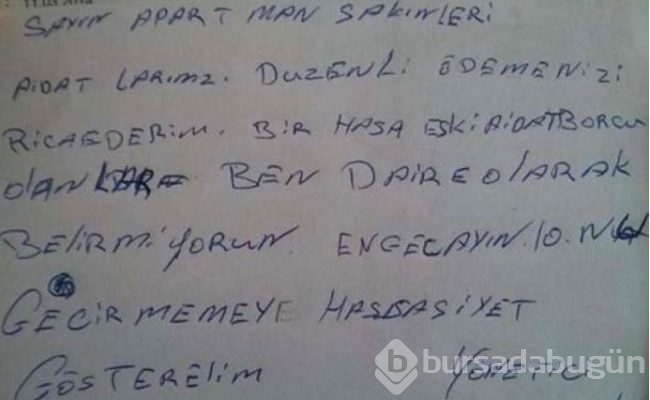 SAYIN APARTMAN SAKINLERİ
AİDAT LARIMZ. DUZENLİ ÖDEMENİZİ
RİCAEDERİM. BİR HASA ESKİ AİDATBORCU
OLANLAR BEN DAİREOLARAK
BELİRMİYORUN ENGECAYIN.10.N
GECİRMEMEYE HASSASİYET
GÖSTERELİM YÖNETİCİ
bursadabugün